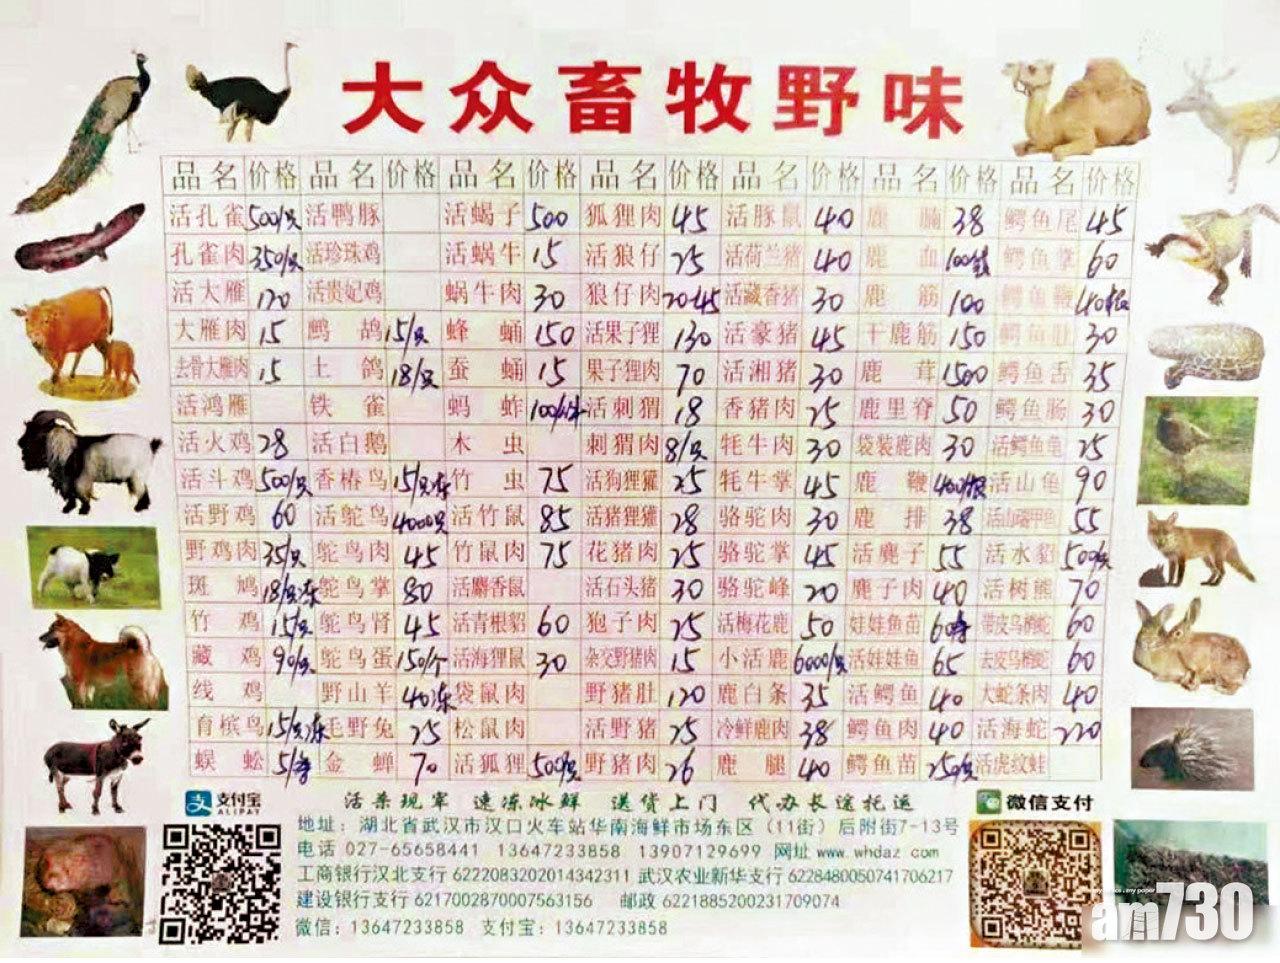 大众畜牧野味
品名 价格 品名 价格 品名 价格 品名 价格 品名 价格 品名 价格 品名 价格
活孔雀 500/只 活鸭豚 活蝎子 500 狐狸肉 45 活豚鼠 40 鹿腩 38 鳄鱼尾 45
孔雀肉 350/只 活珍珠鸡 活蜗牛 15 活狼仔 25 活荷兰猪 40 鹿血 鳄鱼掌 60
活大雁 120 活贵妃鸡 蜗牛肉 30 狼仔肉 活藏香猪 30 鹿筋 100 鳄鱼鞭
大雁肉 15 鹧鸪 15/只 蜂蛹 150 活果子狸 130 活豪猪 45 干鹿筋 150 鳄鱼肚 30
去骨大雁肉 15 土鸽 18/只 蚕蛹 15 果子狸肉 70 活湘猪 30 鹿茸 1500 鳄鱼舌 35
活鸿雁 铁雀 蚂蚱 活刺猬 18 香猪肉 25 鹿里脊 50 鳄鱼肠 30
活火鸡 28 活白鹅 木虫 刺猬肉 8/只 牦牛肉 30 袋装鹿肉 30 活鳄鱼龟 25
活斗鸡 500/只 香椿鸟 15/只冻 竹虫 75 活狗狸獾 25 牦牛掌 45 鹿鞭 活山龟 90
活野鸡 60 活鸵鸟 4000只 活竹鼠 85 活猪狸獾 28 骆驼肉 30 鹿排 38 55
野鸡肉 35/只 鸵鸟肉 45 竹鼠肉 75 花猪肉 25 骆驼掌 45 活麂子 55 活水貂 500/只
斑鸠 18/只冻 鸵鸟掌 80 活麝香鼠 活石头猪 30 骆驼峰 20 麂子肉 40 活树熊 70
竹鸡 15/只 鸵鸟肾 45 活青根貂 60 狍子肉 25 活梅花鹿 50 娃娃鱼苗 带皮乌梢蛇 60
藏鸡 90/只 鸵鸟蛋 150/个 活海狸鼠 30 杂交野猪肉 15 小活鹿 6000/只 活娃娃鱼 65 去皮乌梢蛇 60
线鸡 野山羊 40冻 袋鼠肉 野猪肚 120 鹿白条 35 活鳄鱼 40 大蛇条肉 40
育槟鸟 15/只冻 毛野兔 25 松鼠肉 活野猪 25 冷鲜鹿肉 38 鳄鱼肉 40 活海蛇 220
蜈蚣 金蝉 70 活狐狸 500/只 野猪肉 26 鹿腿 40 鳄鱼苗 250/只 活虎纹蛙
支付宝 ALIPAY
活杀现宰 速冻冰鲜 送货上门 代办长途托运
微信支付
地址：湖北省武汉市汉口火车站华南海鲜市场东区（11街）后附街7-13号
电话 027-65658441 13647233858 13907129699 网址 www.whdaz.com
工商银行汉北支行 6222083202014342311 武汉农业新华支行 6228480050741706217
建设银行支行 6217002870007563156 邮政 6221885200231709074
微信：13647233858 支付宝：13647233858
am730